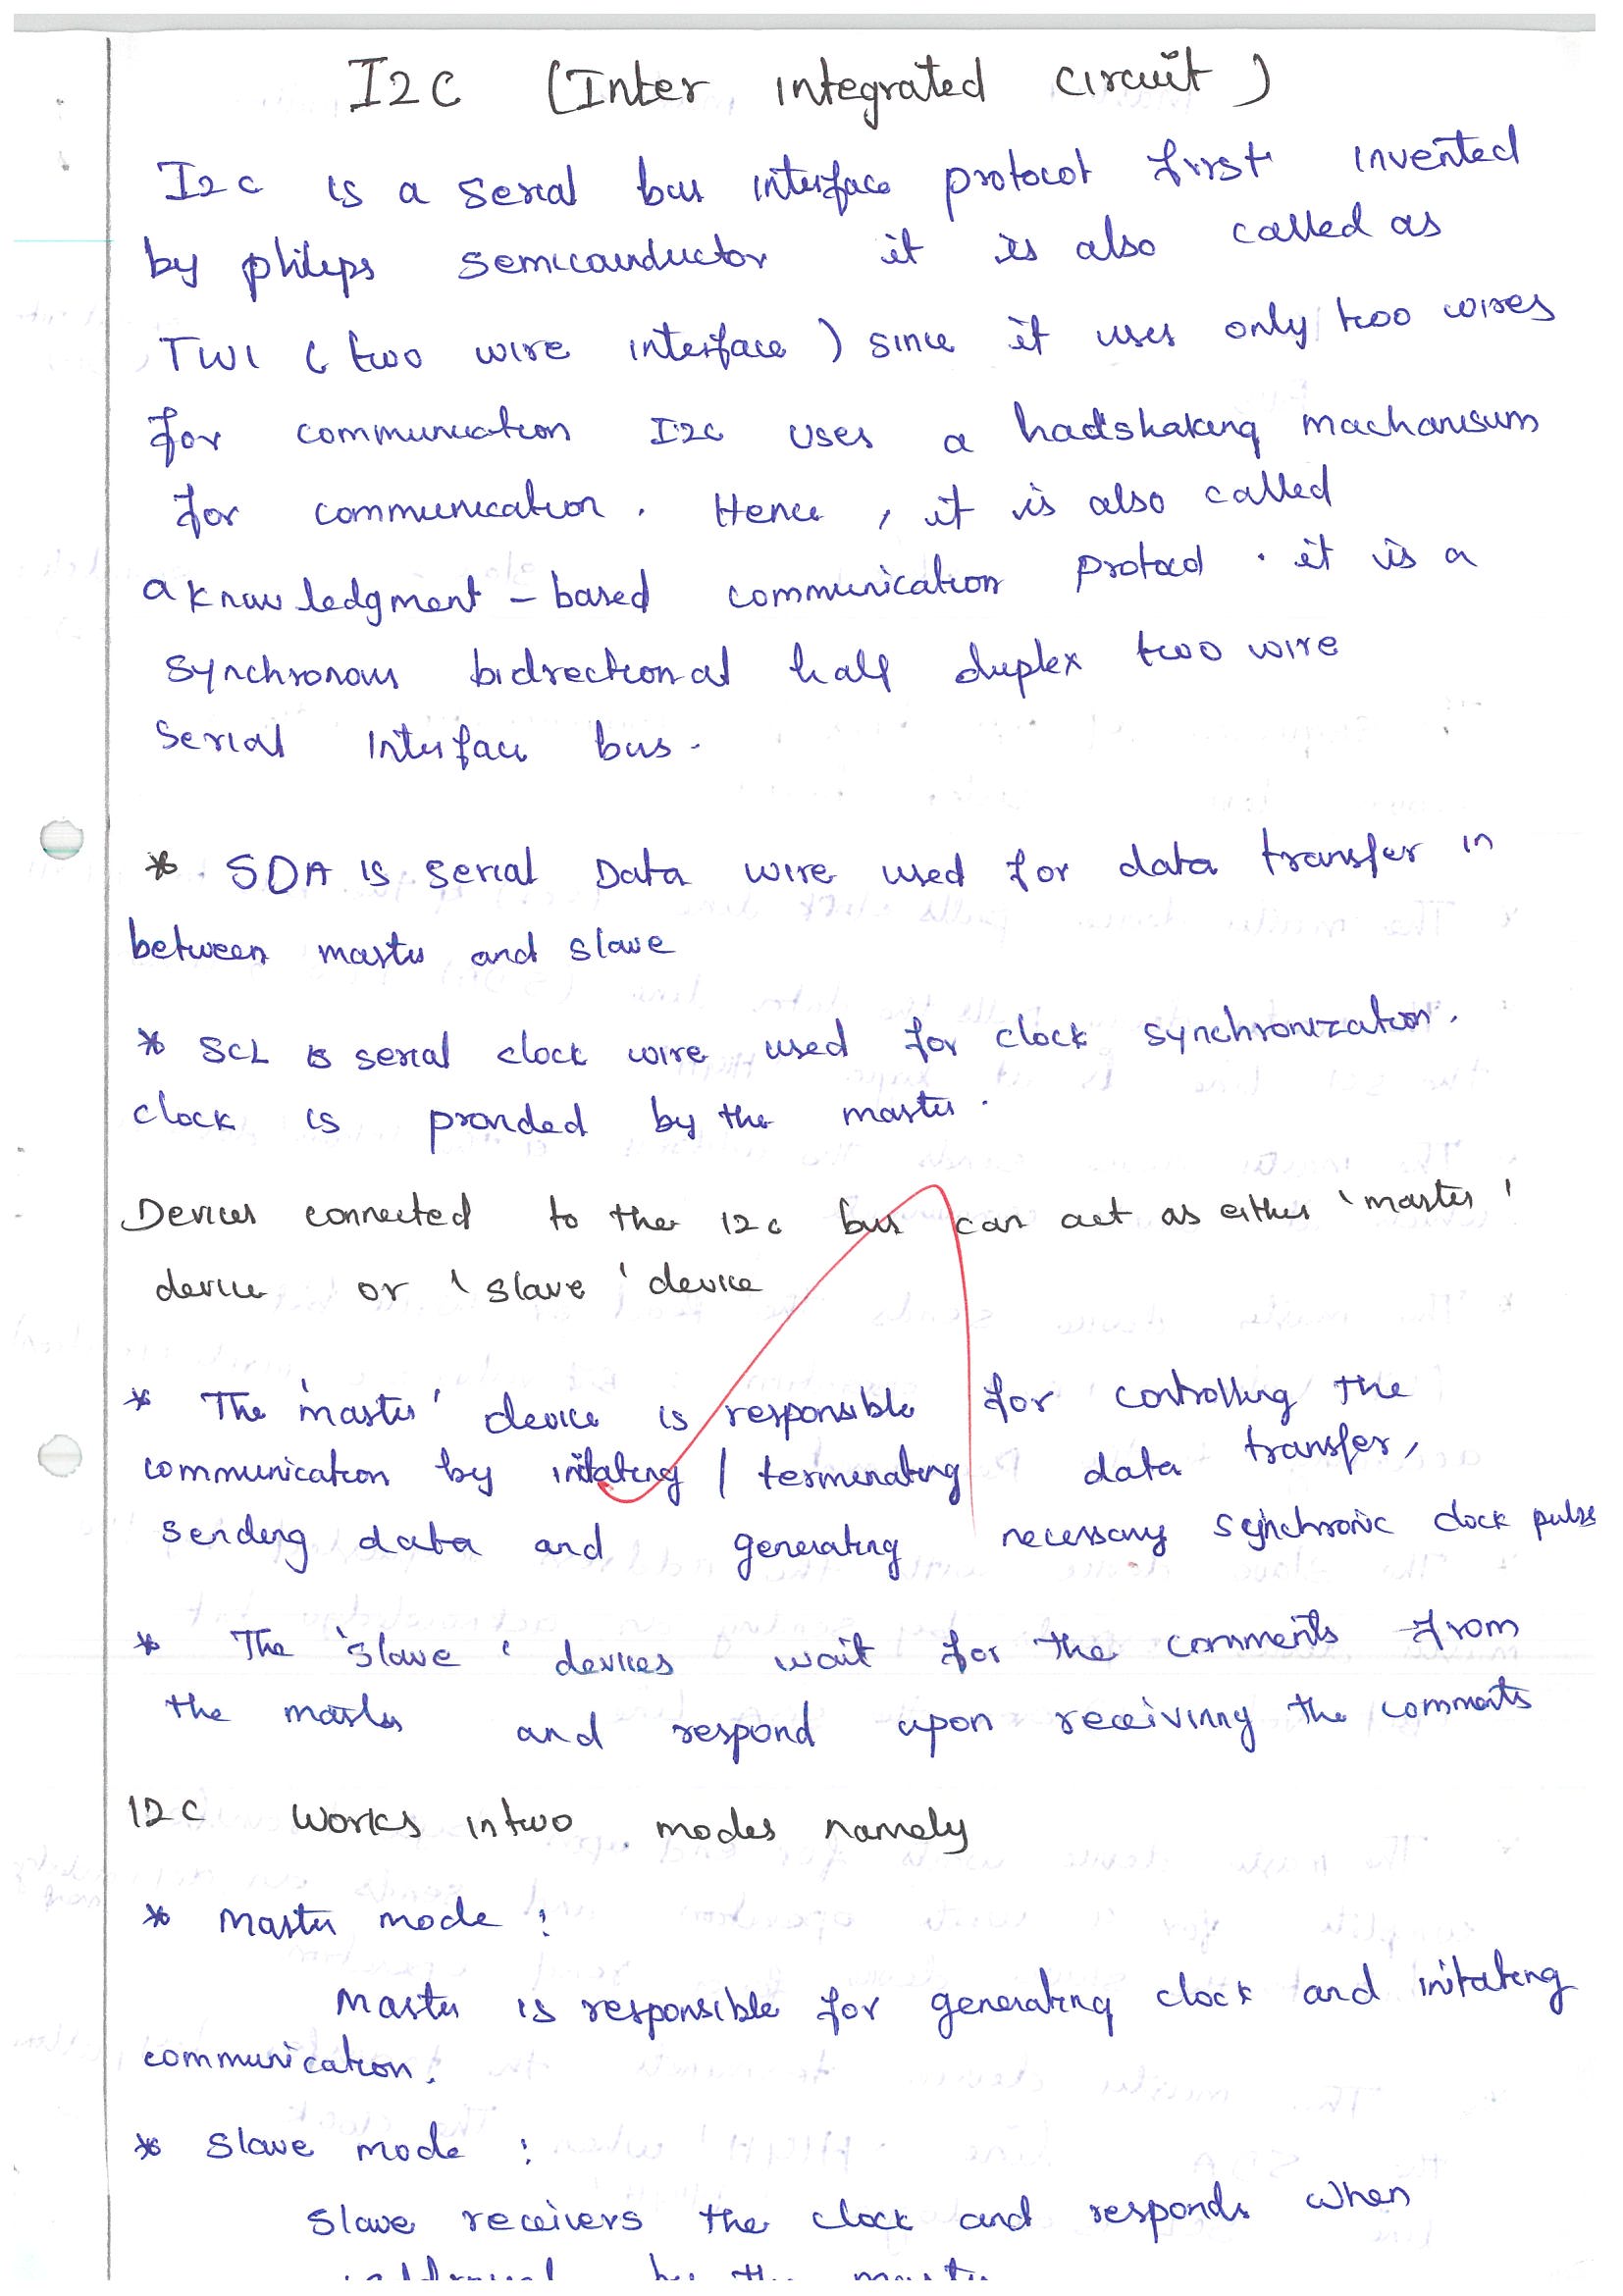 I2C (Inter integrated circuit)
I2c is a serial bus interface protocol first invented
by philips semiconductor it is also called as
TWI (two wire interface) since it uses only two wires
for communication I2c uses a hadshaking machanisum
for communication. Hence, it is also called
aknowledgment-based communication protocol. it is a
synchronous bidrectional half duplex two wire
Serial Interface bus.
* SDA is serial Data wire used for data transfer in
between master and slave
* SCL is serial clock wire used for clock synchronization.
clock is provided by the master.
Devices connected to the I2c bus can act as either 'master'
device or 'slave' device
* The 'master' device is responsible for controlling the
communication by initating / terminating data transfer,
sending data and generating necessary synchronic clock pulse
* The 'slave' devices wait for the comments from
the master and respond upon receivinng the comments
I2C Works in two modes namely
* Master mode :
Master is responsible for generating clock and initating
communication.
* Slave mode :
Slave receivers the clock and responds when
by the master